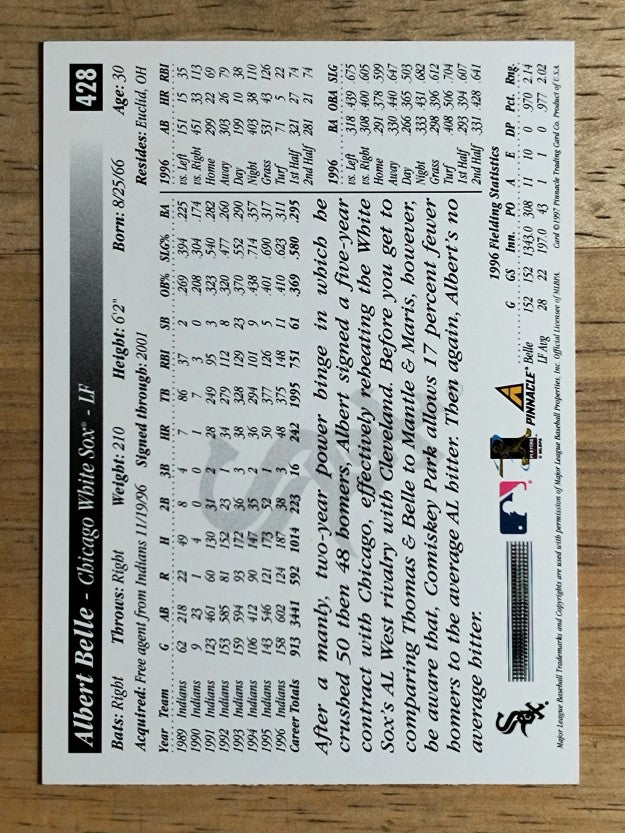 Albert Belle - Chicago White Sox® - LF 428
Bats: Right Throws: Right Weight: 210 Height: 6'2" Born: 8/25/66 Age: 30
Acquired: Free agent from Indians 11/19/96 Signed through: 2001 Resides: Euclid, OH
Year Team G AB R H 2B 3B HR TB RBI SB OB% SLG% BA
1989 Indians 62 218 22 49 8 4 7 86 37 2 .269 .394 .225
1990 Indians 9 23 1 4 0 0 1 7 3 0 .208 .304 .174
1991 Indians 123 461 60 130 31 2 28 249 95 3 .323 .540 .282
1992 Indians 153 585 81 152 23 1 34 279 112 8 .320 .477 .260
1993 Indians 159 594 93 172 36 3 38 328 129 23 .370 .552 .290
1994 Indians 106 412 90 147 35 2 36 294 101 9 .438 .714 .357
1995 Indians 143 546 121 173 52 1 50 377 126 5 .401 .690 .317
1996 Indians 158 602 124 187 38 3 48 375 148 11 .410 .623 .311
Career Totals 913 3441 592 1014 223 16 242 1995 751 61 .369 .580 .295
1996 AB HR RBI
vs. Left 151 15 35
vs. Right 451 33 113
Home 299 22 69
Away 303 26 79
Day 199 10 38
Night 403 38 110
Grass 531 43 126
Turf 71 5 22
1st Half 321 27 74
2nd Half 281 21 74
1996 BA OBA SLG
vs. Left .318 .439 .675
vs. Right .308 .400 .605
Home .291 .378 .599
Away .330 .440 .647
Day .266 .365 .503
Night .333 .431 .682
Grass .298 .396 .612
Turf .408 .506 .704
1st Half .293 .394 .607
2nd Half .331 .428 .641
After a manly, two-year power binge in which he
crushed 50 then 48 homers, Albert signed a five-year
contract with Chicago, effectively reheating the White
Sox's AL West rivalry with Cleveland. Before you get to
comparing Thomas & Belle to Mantle & Maris, however,
be aware that, Comiskey Park allows 17 percent fewer
homers to the average AL hitter. Then again, Albert's no
average hitter.
1996 Fielding Statistics
G GS Inn. PO A E DP Pct. Rng.
Belle 152 152 1343.0 308 11 10 0 .970 2.14
LF Avg 28 22 197.0 43 1 1 0 .977 2.02
Sox
PINNACLE®
© MLBPA
Major League Baseball Trademarks and Copyrights are used with permission of Major League Baseball Properties, Inc. Official Licensee of MLBPA. Card ©1997 Pinnacle Trading Card Co. Product of U.S.A.